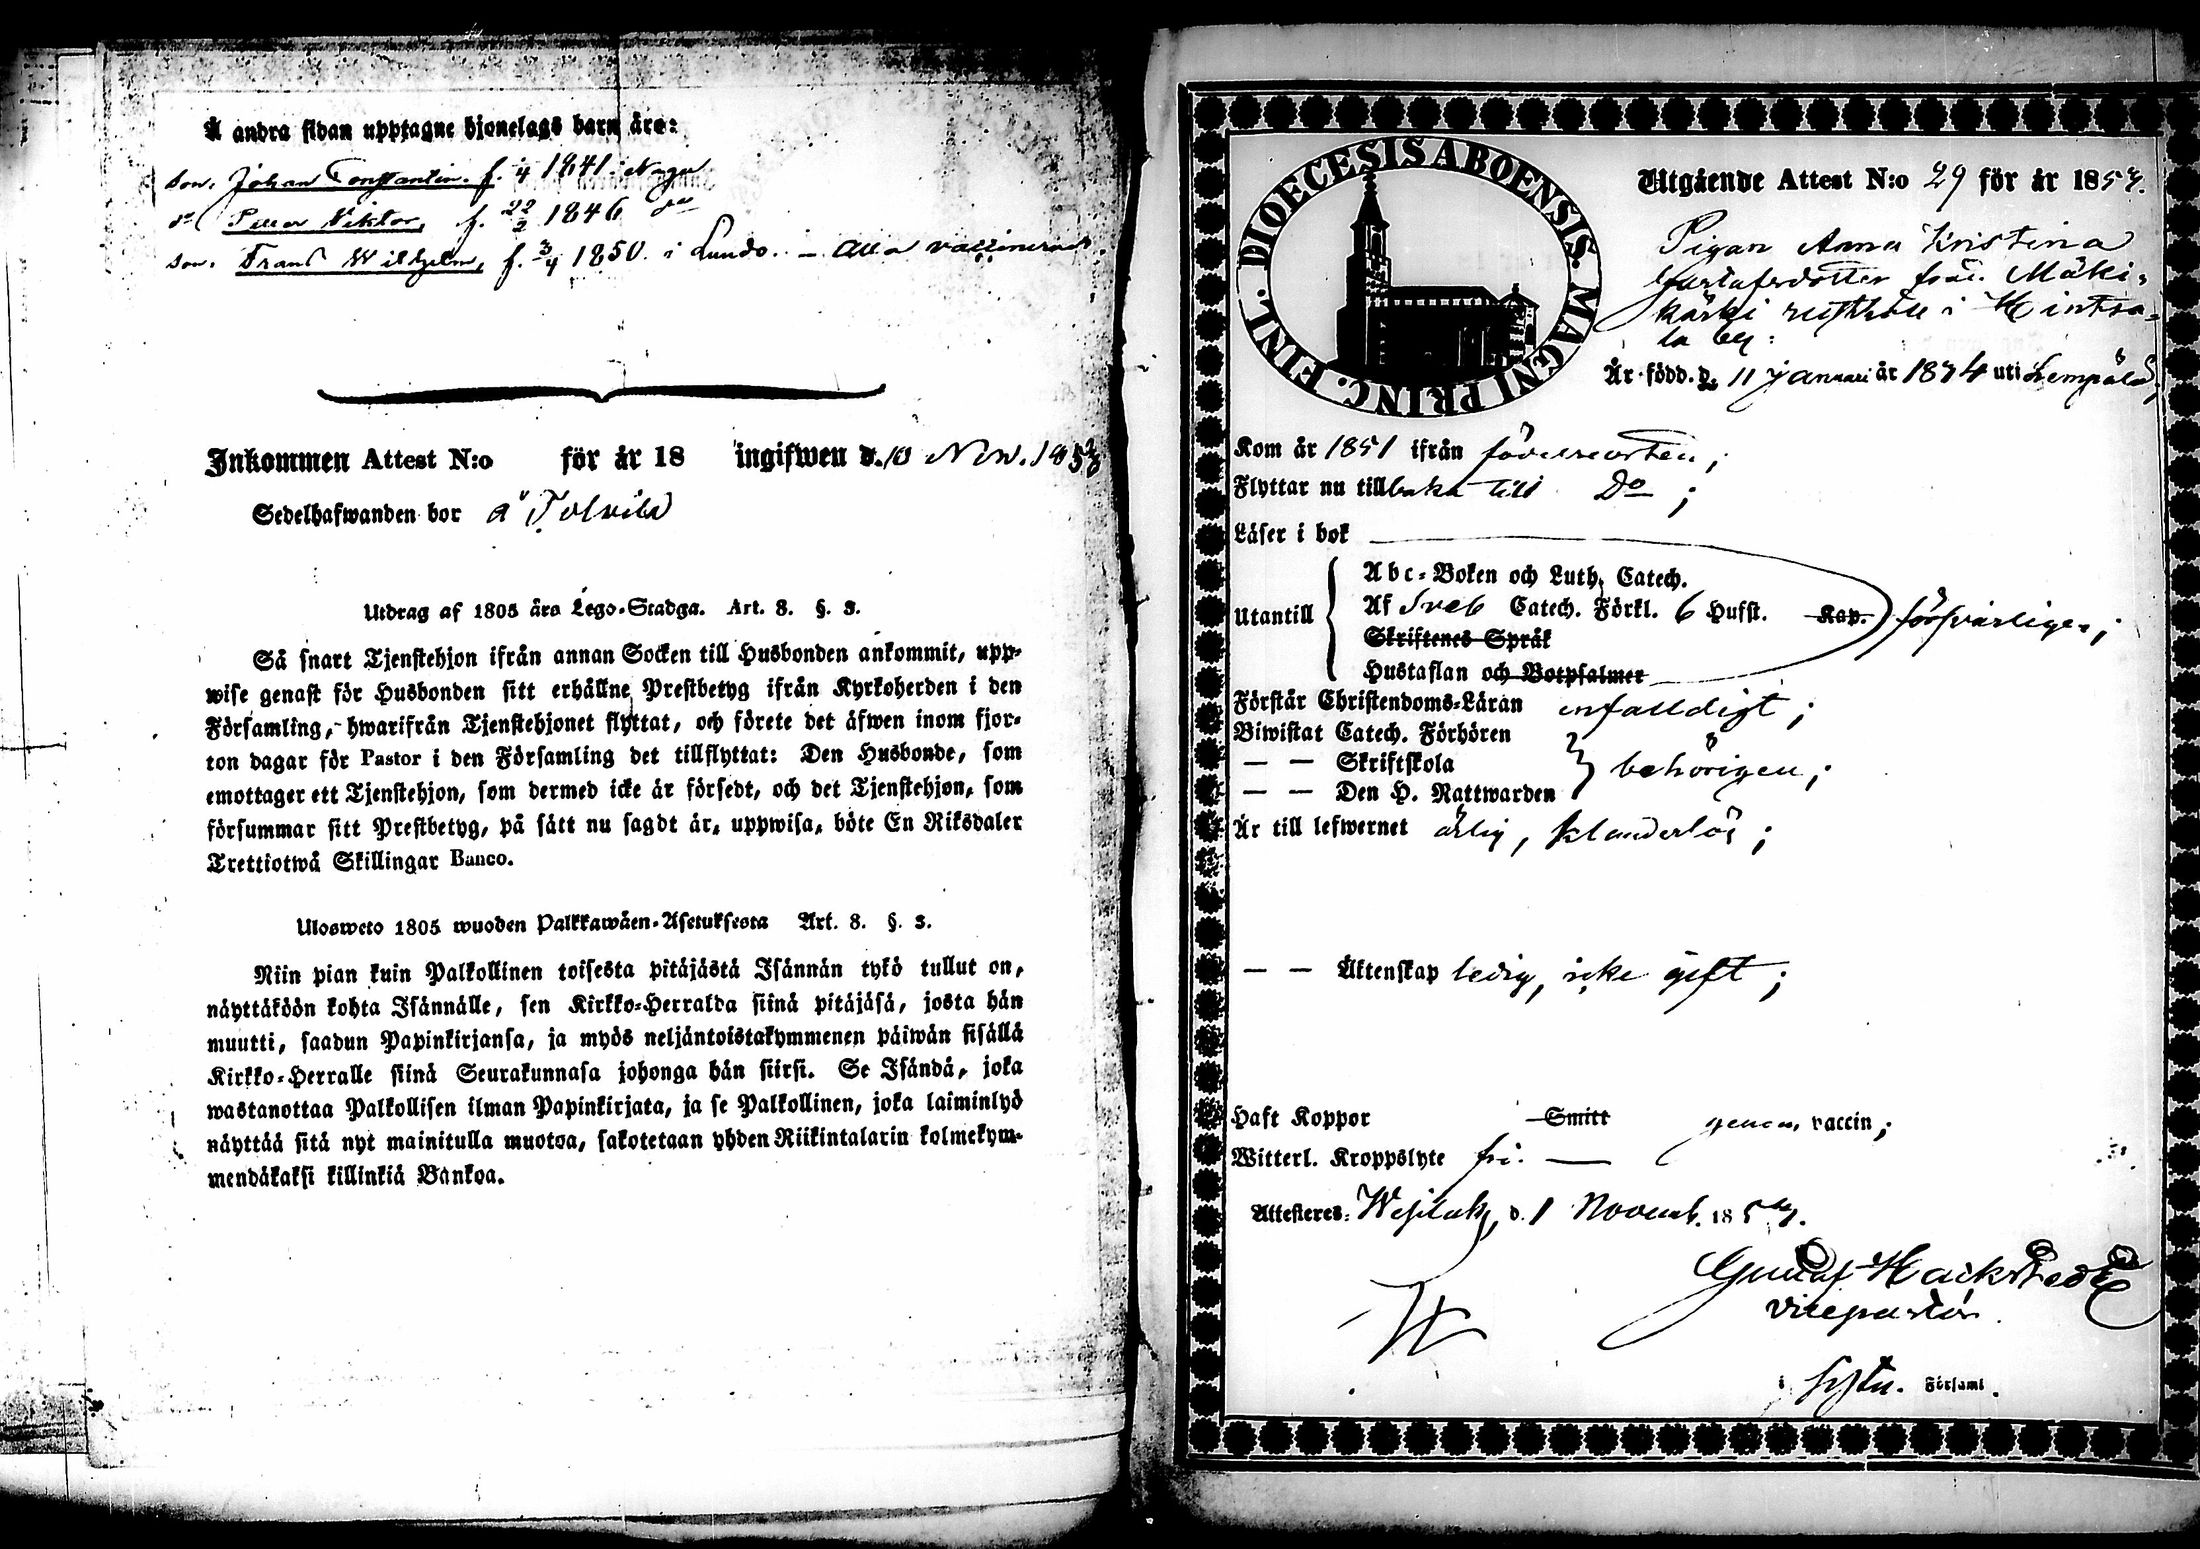 Å andra sidan upptagne hjonelags barn äro:
son. Johan Constantin. f. 1841 i Nagu
do Viktor, f. 22/2 1846 do
son. Frans Wilhelm, f. 3/4 1850. i Lundo. – Alla vaccinerade.
Inkommen Attest N:o för år 18 ingifwen d. 10 Nov. 1853
Sedelhafwanden bor å Tolvila
Utdrag af 1805 års Lego-Stadga. Art. 8. §. 3.
Så snart Tjenstehjon ifrån annan Socken till Husbonden ankommit, upp-
wise genast för Husbonden sitt erhållne Prestbetyg ifrån Kyrkoherden i den
Församling, hwarifrån Tjenstehjonet flyttat, och förete det äfwen inom fjor-
ton dagar för Pastor i den Församling det tillflyttat: Den Husbonde, som
emottager ett Tjenstehjon, som dermed icke är försedt, och det Tjenstehjon, som
försummar sitt Prestbetyg, på sätt nu sagdt är, uppwisa, böte En Riksdaler
Trettiotwå Skillingar Banco.
Ulosweto 1805 wuoden Palkkawäen-Asetuksesta Art. 8. §. 3.
Niin pian kuin Palkollinen toisesta pitäjästä Isännän tykö tullut on,
näyttäköön kohta Isännälle, sen Kirkko-Herralda siinä pitäjäsä, josta hän
muutti, saadun Papinkirjansa, ja myös neljäntoistakymmenen päiwän sisällä
Kirkko-Herralle siinä Seurakunnasa johonga hän siirsi. Se Isändä, joka
wastanottaa Palkollisen ilman Papinkirjata, ja se Palkollinen, joka laiminlyö
näyttää sitä nyt mainitulla muotoa, sakotetaan yhden Riikintalarin kolmekym-
mendäkaksi killinkiä Bankoa.
DIOECESIS ABOENSIS. MAGNI PRINC. FINL.
Utgående Attest N:o 29 för år 1853.
Pigan Anna Kristina
Gustafsdotter från Mäki-
kärki rusthåll i Hintsa-
la by:
Är född d. 11 januari år 1834 uti Lempälä;
Kom år 1851 ifrån födelseorten;
Flyttar nu tillbaka till Do;
Läser i bok
Abc-Boken och Luth. Catech.
Utantill Af Sveb Catech. Förkl. 6 Hufst. Kap. försvarligen;
Skriftenes Språk
Hustaflan och Botpsalmer
Förstår Christendoms-Läran enfaldigt;
Biwistat Catech. Förhören
— — Skriftskola behörigen;
— — Den H. Nattwarden
Är till lefwernet ärlig, klanderlös;
— — Äktenskap ledig, icke gift;
Haft Koppor Smitt genom vaccin;
Witterl. Kroppslyte fri. —
Attesteres: Wesilaks, d. 1 Novemb. 1853.
Gustaf Hackstedt
vicepastor
i Församl.